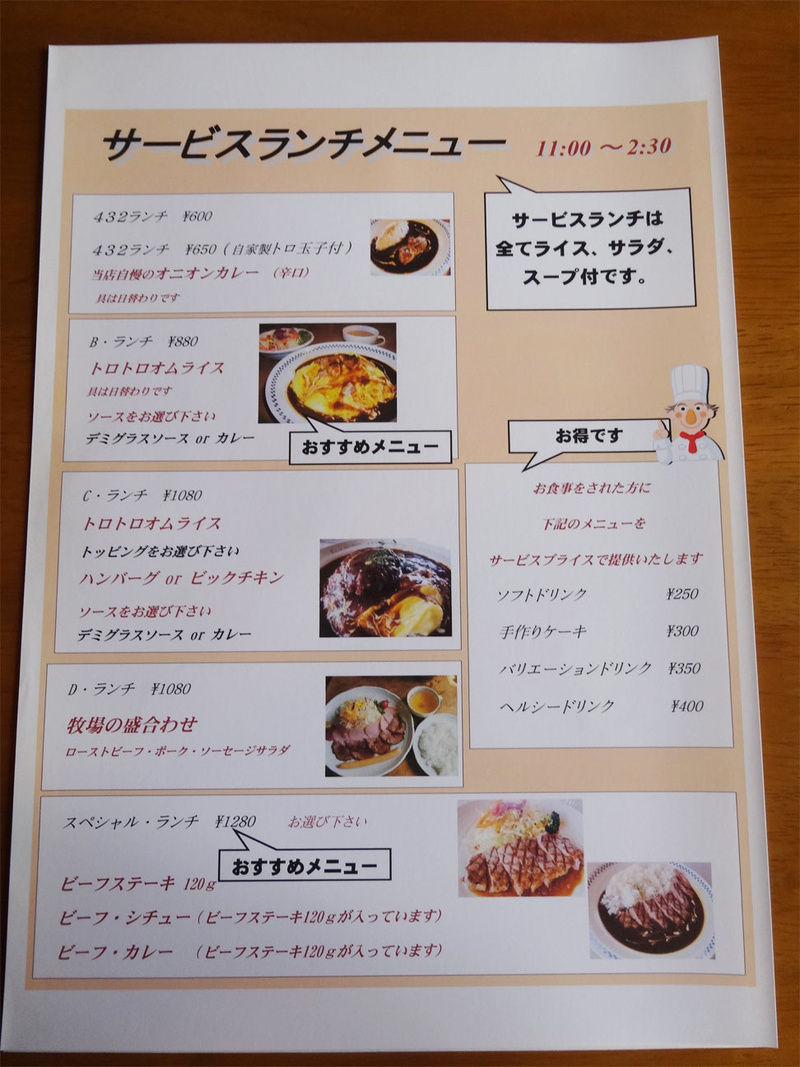 サービスランチメニュー 11:00 〜 2:30
サービスランチは
全てライス、サラダ、
スープ付です。
432ランチ ¥600
432ランチ ¥650（自家製トロ玉子付）
当店自慢のオニオンカレー （辛口）
具は日替わりです
B・ランチ ¥880
トロトロオムライス
具は日替わりです
ソースをお選び下さい
デミグラスソース or カレー
おすすめメニュー
C・ランチ ¥1080
トロトロオムライス
トッピングをお選び下さい
ハンバーグ or ビックチキン
ソースをお選び下さい
デミグラスソース or カレー
D・ランチ ¥1080
牧場の盛合わせ
ローストビーフ・ポーク・ソーセージサラダ
お得です
お食事をされた方に
下記のメニューを
サービスプライスで提供いたします
ソフトドリンク ¥250
手作りケーキ ¥300
バリエーションドリンク ¥350
ヘルシードリンク ¥400
スペシャル・ランチ ¥1280 お選び下さい
おすすめメニュー
ビーフステーキ 120g
ビーフ・シチュー（ビーフステーキ120gが入っています）
ビーフ・カレー （ビーフステーキ120gが入っています）